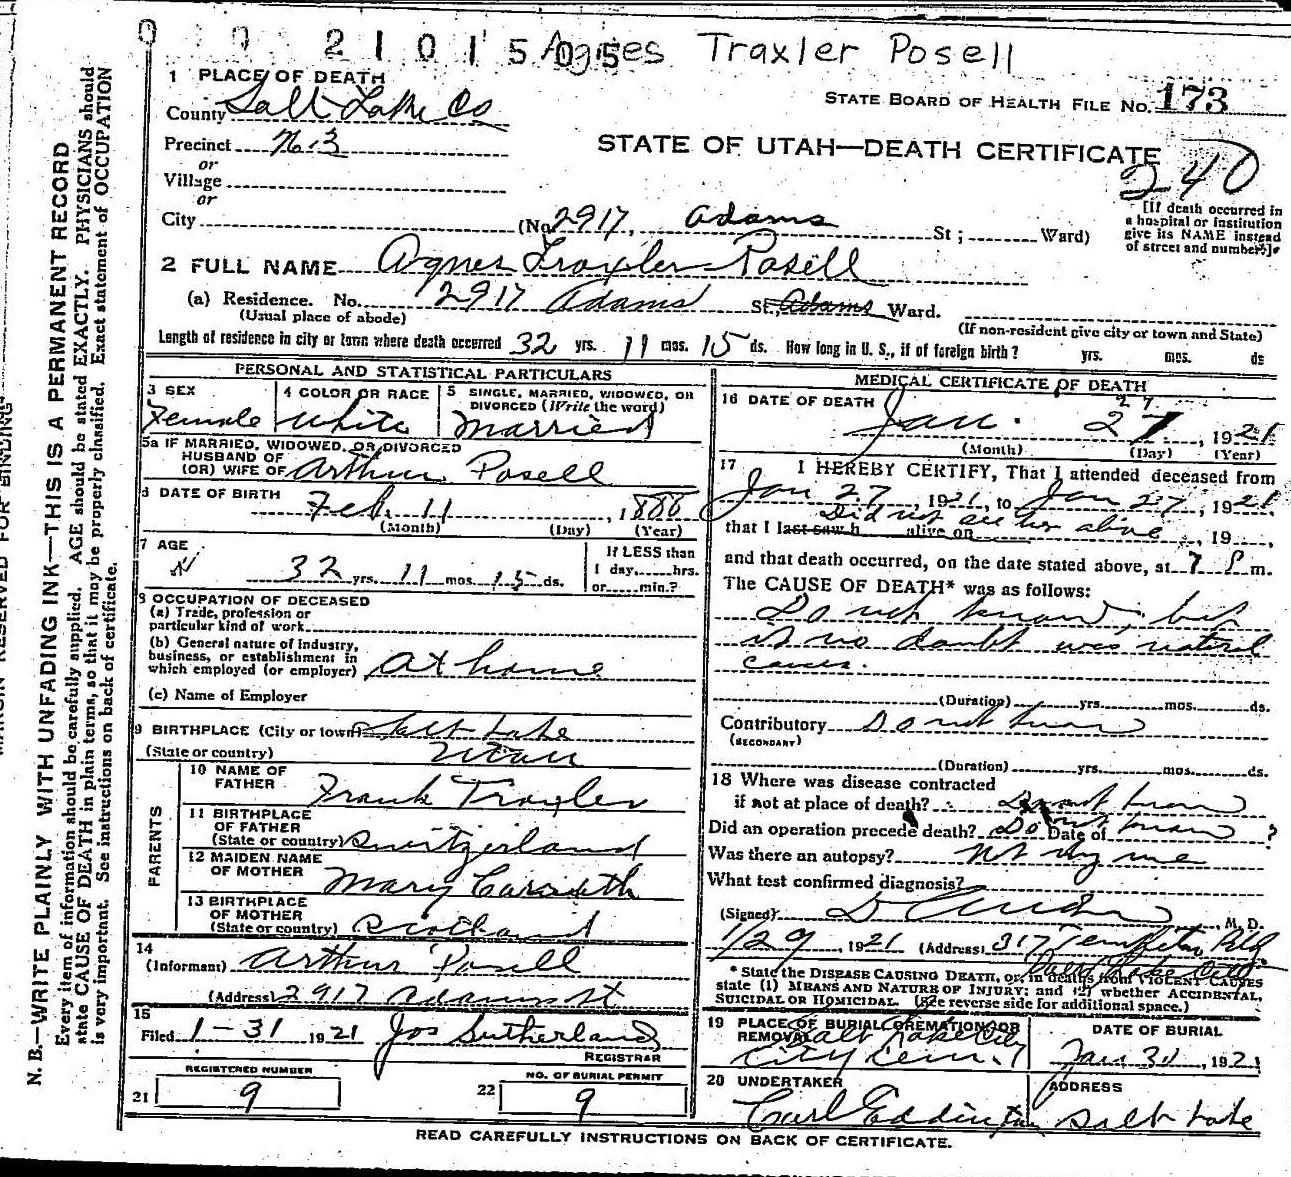 0 0 2 1 0 1 5 0 5 Agnes Traxler Posell
1 PLACE OF DEATH
County Salt Lake Co
STATE BOARD OF HEALTH FILE NO. 173
Precinct No 3
STATE OF UTAH—DEATH CERTIFICATE
240
or
Village
or
City (No 2917, Adams St ; Ward)
[If death occurred in
a hospital or institution
give its NAME instead
of street and number.]
2 FULL NAME Agnes Traxler Posell
(a) Residence. No. 2917 Adams St., Adams Ward.
(Usual place of abode) (If non-resident give city or town and State)
Length of residence in city or town where death occurred 32 yrs. 11 mos. 15 ds. How long in U. S., if of foreign birth? yrs. mos. ds
PERSONAL AND STATISTICAL PARTICULARS
3 SEX 4 COLOR OR RACE 5 SINGLE, MARRIED, WIDOWED, OR
DIVORCED (Write the word)
Female White Married
5a IF MARRIED, WIDOWED, OR DIVORCED
HUSBAND OF
(OR) WIFE OF Arthur Posell
6 DATE OF BIRTH
Feb. 11, 1888
(Month) (Day) (Year)
7 AGE If LESS than
32 yrs. 11 mos. 15 ds. 1 day, hrs.
or min.?
8 OCCUPATION OF DECEASED
(a) Trade, profession or
particular kind of work
(b) General nature of industry,
business, or establishment in
which employed (or employer) At home
(c) Name of Employer
9 BIRTHPLACE (City or town) Salt Lake
(State or country) Utah
PARENTS
10 NAME OF
FATHER Frank Traxler
11 BIRTHPLACE
OF FATHER
(State or country) Switzerland
12 MAIDEN NAME
OF MOTHER Mary
13 BIRTHPLACE
OF MOTHER
(State or country) Scotland
14
(Informant) Arthur Posell
(Address) 2917 Adams st
15
Filed 1-31 1921 Jos Sutherland
REGISTRAR
REGISTERED NUMBER NO. OF BURIAL PERMIT
21 9 22 9
MEDICAL CERTIFICATE OF DEATH
16 DATE OF DEATH 27
Jan. 27, 1921
(Month) (Day) (Year)
17 I HEREBY CERTIFY, That I attended deceased from
Jan 27, 1921, to Jan 27, 1921
Did not see her alive
that I last saw h alive on , 19 ,
and that death occurred, on the date stated above, at 7 P m.
The CAUSE OF DEATH* was as follows:
Do not know, but
it no doubt was natural
causes.
(Duration) yrs. mos. ds.
Contributory Do not know
(SECONDARY)
(Duration) yrs. mos. ds.
18 Where was disease contracted
if not at place of death? Do not know
Did an operation precede death? Do not know Date of ?
Was there an autopsy? Not by me
What test confirmed diagnosis?
(Signed) , M. D.
1/29, 1921 (Address) 317 Templeton Bld
Salt Lake City
* State the DISEASE CAUSING DEATH, or, in deaths from VIOLENT CAUSES
state (1) MEANS AND NATURE OF INJURY; and (2) whether ACCIDENTAL,
SUICIDAL OR HOMICIDAL. (See reverse side for additional space.)
19 PLACE OF BURIAL CREMATION OR
REMOVAL Salt Lake City
City Cem.
DATE OF BURIAL
Jan 31, 1921
20 UNDERTAKER ADDRESS
Carl Eddington Salt Lake
READ CAREFULLY INSTRUCTIONS ON BACK OF CERTIFICATE.
MARGIN RESERVED FOR BINDING
N. B.—WRITE PLAINLY WITH UNFADING INK—THIS IS A PERMANENT RECORD
Every item of information should be carefully supplied. AGE should be stated EXACTLY. PHYSICIANS should
state CAUSE OF DEATH in plain terms, so that it may be properly classified. Exact statement of OCCUPATION
is very important. See instructions on back of certificate.